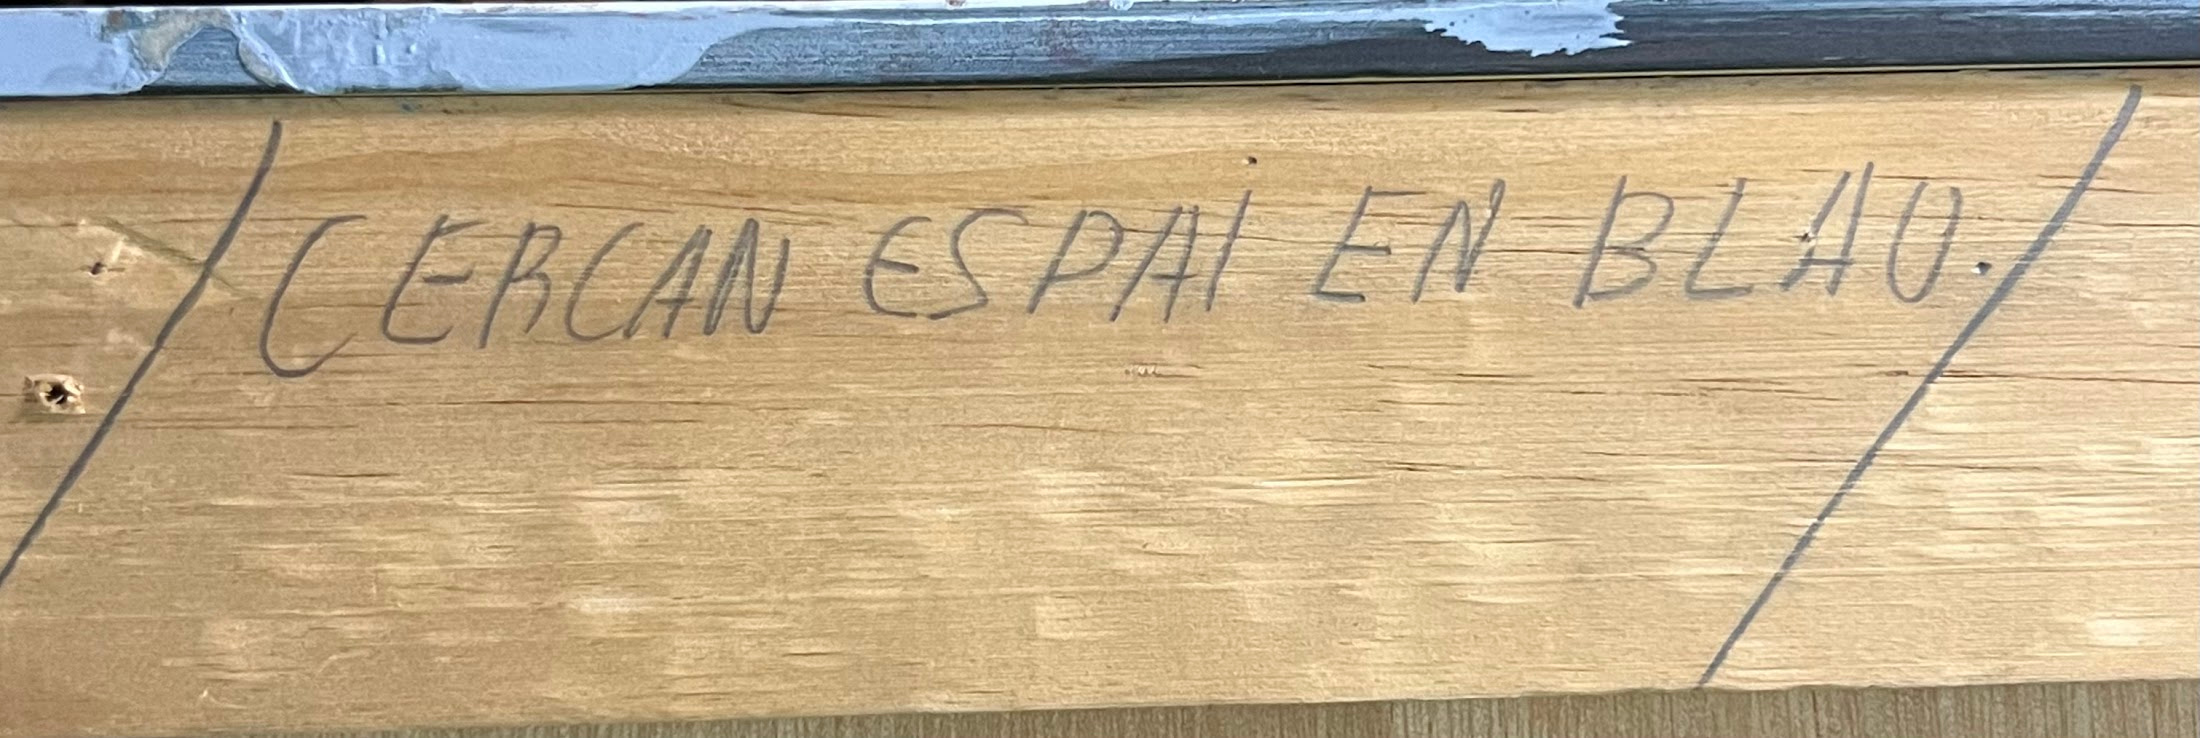 /CERCAN ESPAI EN BLAU./